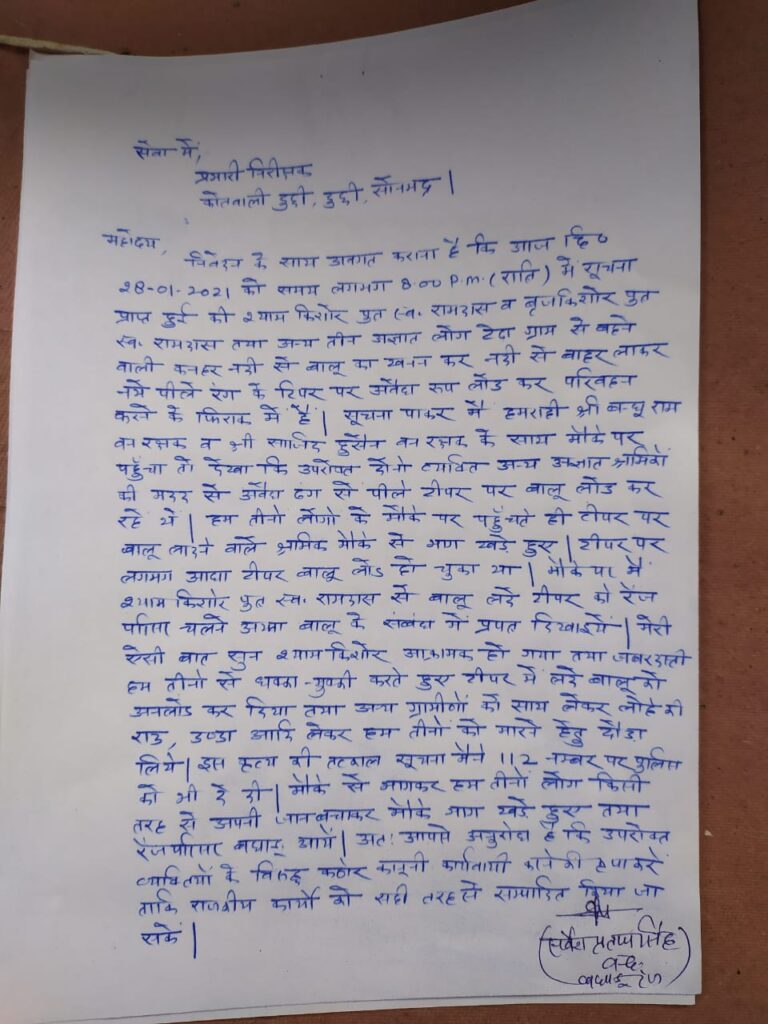 सेवा में,
प्रभारी निरीक्षक
कोतवाली दुद्दी, दुद्दी, सोनभद्र |
महोदय,
निवेदन के साथ अवगत कराना है कि आज दि०
28-01-2021 को समय लगभग 8:00 P.M. (रात्रि) में सूचना
प्राप्त हुई की श्याम किशोर पुत्र स्व. रामदास व बृजकिशोर पुत्र
स्व. रामदास तथा अन्य तीन अज्ञात लोग टेढ़ा ग्राम से बहने
वाली कनहर नदी से बालू का खनन कर नदी से बाहर लाकर
नये पीले रंग के टिपर पर अवैध रूप लोड कर परिवहन
करने के फिराक में हैं | सूचना पाकर मैं हमराही श्री बन्धु राम
वन रक्षक व श्री साजिद हुसैन वन रक्षक के साथ मौके पर
पहुँचा तो देखा कि उपरोक्त दोनो व्यक्ति अन्य अज्ञात श्रमिकों
की मदद से अवैध ढंग से पीले टीपर पर बालू लोड कर
रहे थे | हम तीनो लोगो के मौके पर पहुँचते ही टीपर पर
बालू लादने वाले श्रमिक मौके से भाग खड़े हुए | टीपर पर
लगभग आधा टीपर बालू लोड हो चुका था | मौके पर मैं
श्याम किशोर पुत्र स्व. रामदास से बालू लदे टीपर को रेंज
चलने अथवा बालू के संबंध में प्रपत्र दिखाइये | मेरी
ऐसी बात सुन श्याम किशोर आक्रामक हो गया तथा जबरदस्ती
हम तीनो से धक्का-मुक्की करते हुए टीपर में लदे बालू को
अनलोड कर दिया तथा अन्य ग्रामीणों को साथ लेकर लोहे की
राड, डण्डा आदि लेकर हम तीनों को मारने हेतु दौड़ा
लिये | इस कृत्य की तत्काल सूचना मैने 112 नम्बर पर पुलिस
को भी दे दी | मौके से भागकर हम तीनों लोग किसी
तरह से अपनी जान बचाकर मौके भाग खड़े हुए तथा
आये | अतः आपसे अनुरोध है कि उपरोक्त
व्यक्तियों के विरूद्ध कठोर कानूनी कार्यवाही करने की कृपा करें
ताकि राजकीय कार्यों को सही तरह से सम्पादित किया जा
सकें |